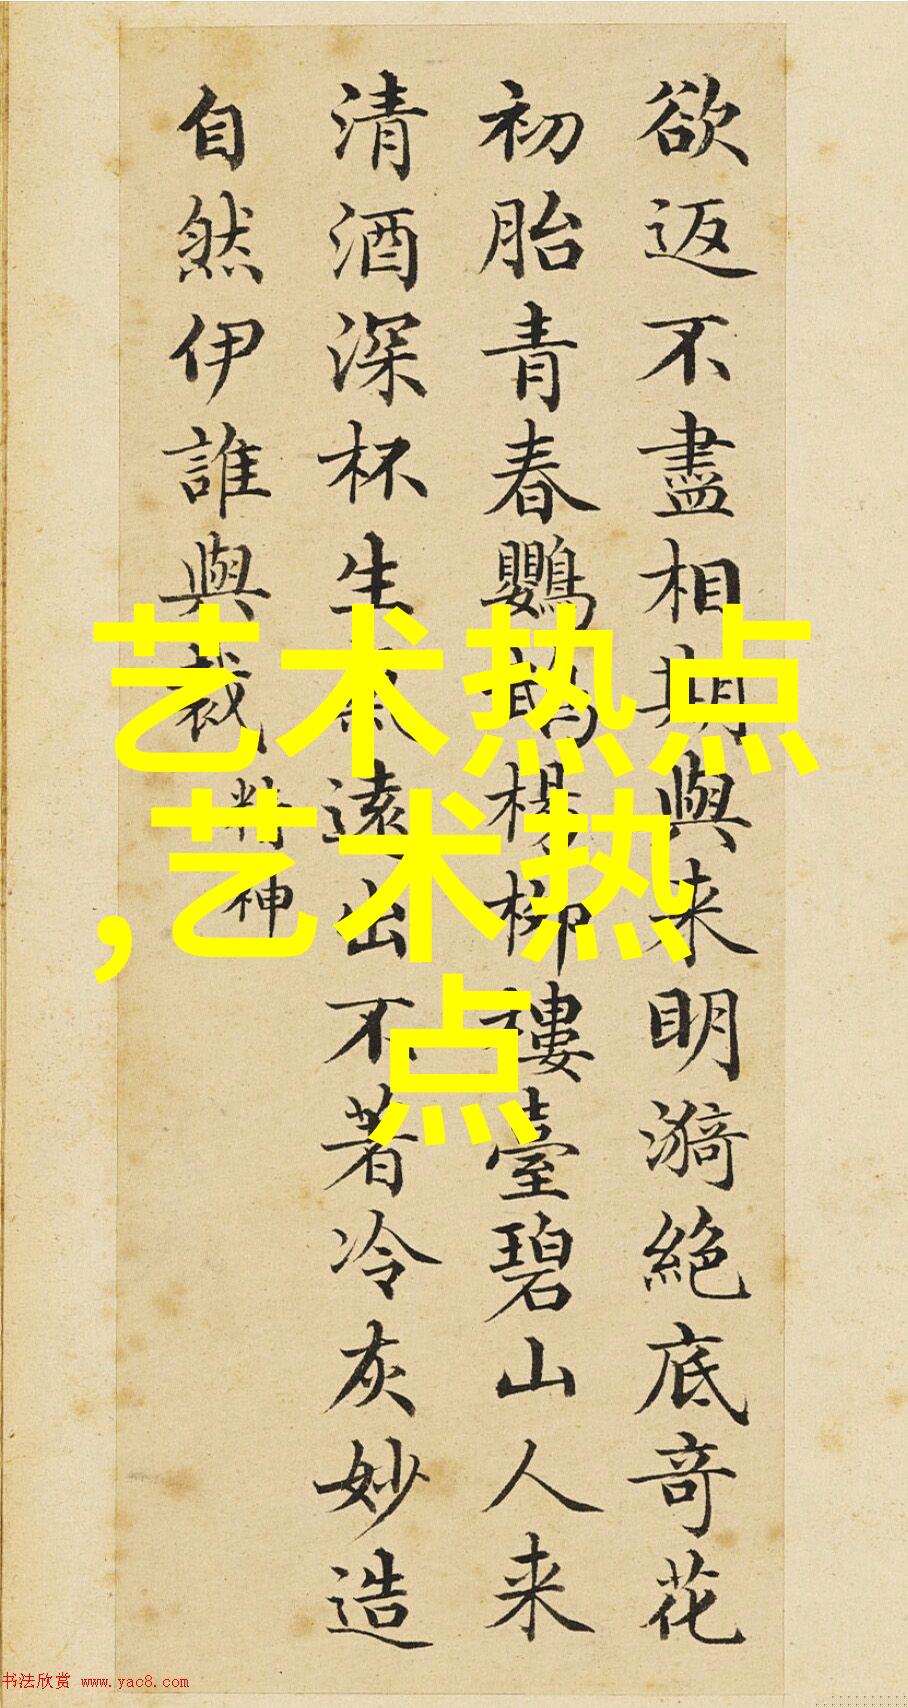 欲返不盡相期與来明漪絶底竒花
初胎青春鸚鵡楊柳樓臺碧山人来
清酒深杯生遠出不著冷灰妙造
自然伊誰與裁
精神
艺术热点
,艺术热
点
书法欣赏 www.yac8.com